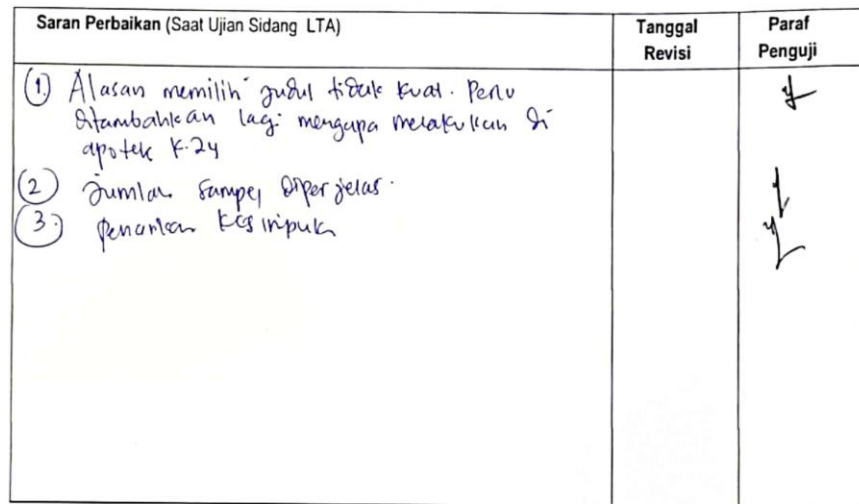 Saran Perbaikan (Saat Ujian Sidang LTA)
Tanggal Revisi
Paraf Penguji
(1) Alasan memilih judul tidak kuat. Perlu
ditambahkan lagi mengapa melakukan di
apotek K-24
(2) Jumlah sampel diperjelas.
(3.) Penarikan kesimpulan